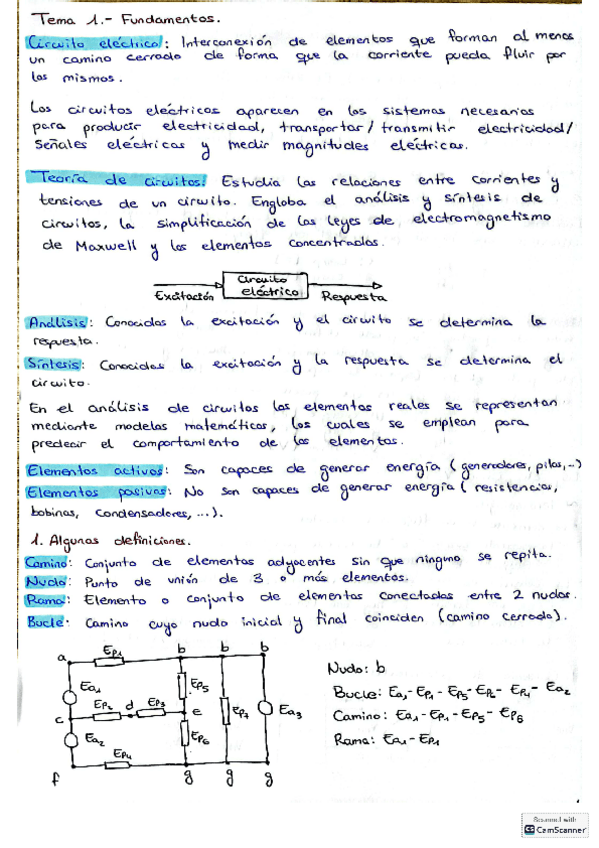 Tema 1.- Fundamentos.
Circuito eléctrico: Interconexión de elementos que forman al menos
un camino cerrado de forma que la corriente pueda fluir por
los mismos.
Los circuitos eléctricos aparecen en los sistemas necesarios
para producir electricidad, transportar/transmitir electricidad/
señales eléctricas y medir magnitudes eléctricas.
Teoría de circuitos: Estudia las relaciones entre corrientes y
tensiones de un circuito. Engloba el análisis y síntesis de
circuitos, la simplificación de las leyes de electromagnetismo
de Maxwell y los elementos concentrados.
Excitación
Circuito
eléctrico
Respuesta
Análisis: Conocidas la excitación y el circuito se determina la
respuesta.
Síntesis: Conocidas la excitación y la respuesta se determina el
circuito.
En el análisis de circuitos los elementos reales se representan
mediante modelos matemáticos, los cuales se emplean para
predecir el comportamiento de los elementos.
Elementos activos: Son capaces de generar energía (generadores, pilas,...)
Elementos pasivos: No son capaces de generar energía (resistencias,
bobinas, condensadores, ...).
1. Algunas definiciones.
Camino: Conjunto de elementos adyacentes sin que ninguno se repita.
Nudo: Punto de unión de 3 o más elementos.
Rama: Elemento o conjunto de elementos conectados entre 2 nudos.
Bucle: Camino cuyo nudo inicial y final coinciden (camino cerrado).
a Ep1 b b b
Ea1 Ep5
c Ep2 d Ep3 e Ep7 Ea3
Ea2 Ep6
Ep4
f g g g
Nudo: b
Bucle: Ea1-Ep1-Ep5-Ep6-Ep4-Ea2
Camino: Ea1-Ep1-Ep5-Ep6
Rama: Ea1-Ep1
Scanned with
CS CamScanner